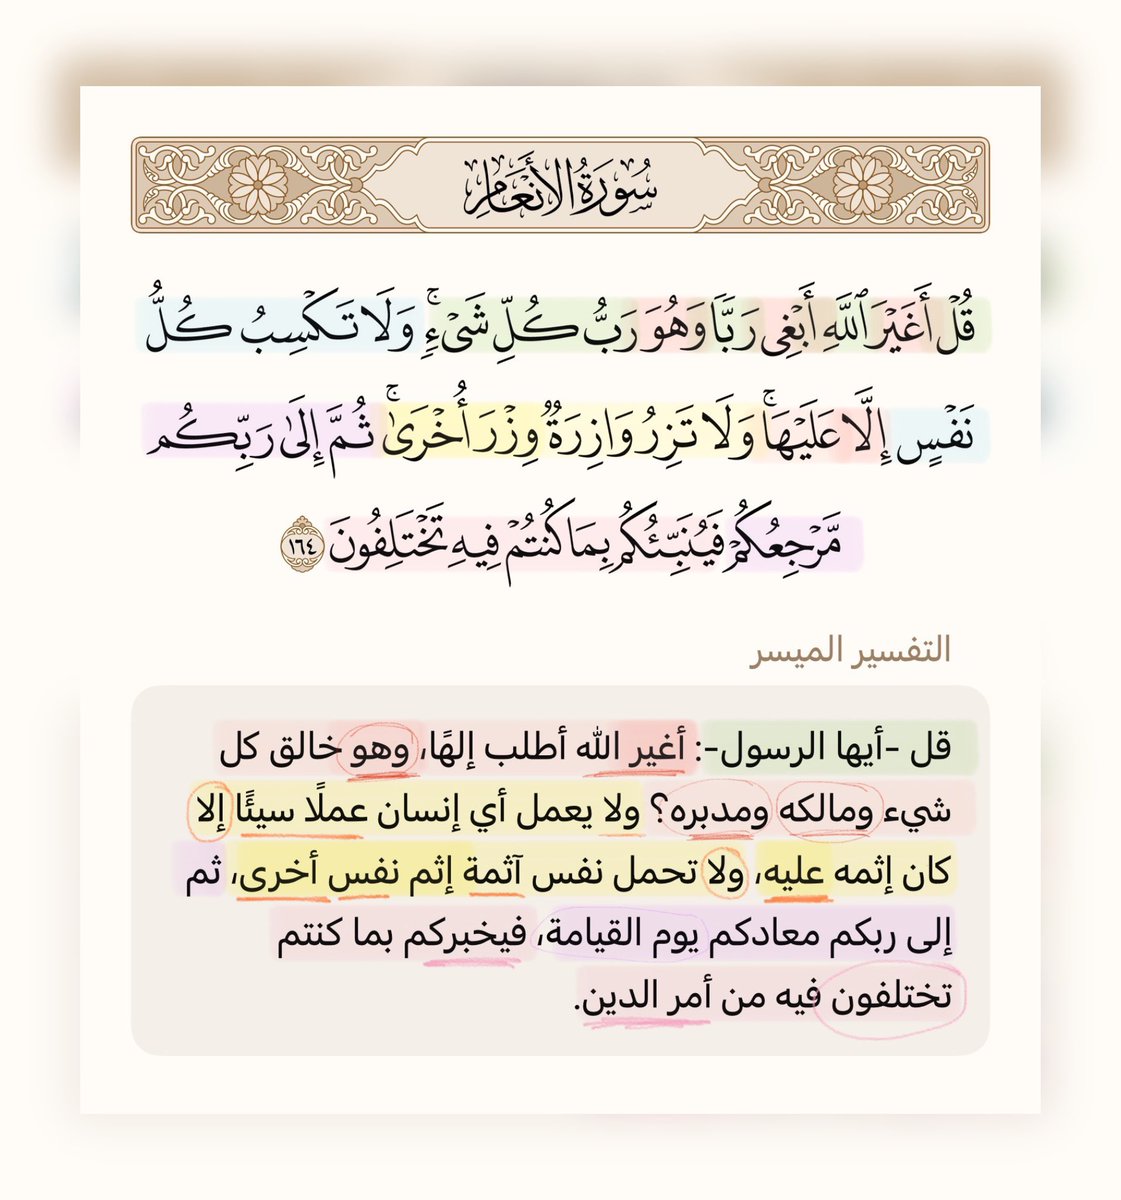 سُورَةُ الأَنْعَامِ
قُلْ أَغَيْرَ ٱللَّهِ أَبْغِى رَبًّا وَهُوَ رَبُّ كُلِّ شَىْءٍۚ وَلَا تَكْسِبُ كُلُّ
نَفْسٍ إِلَّا عَلَيْهَاۚ وَلَا تَزِرُ وَازِرَةٌ وِزْرَ أُخْرَىٰۚ ثُمَّ إِلَىٰ رَبِّكُم
مَّرْجِعُكُمْ فَيُنَبِّئُكُم بِمَا كُنتُمْ فِيهِ تَخْتَلِفُونَ ١٦٤
التفسير الميسر
قل -أيها الرسول-: أغير الله أطلب إلهًا، وهو خالق كل
شيء ومالكه ومدبره؟ ولا يعمل أي إنسان عملًا سيئًا إلا
كان إثمه عليه، ولا تحمل نفس آثمة إثم نفس أخرى، ثم
إلى ربكم معادكم يوم القيامة، فيخبركم بما كنتم
تختلفون فيه من أمر الدين.